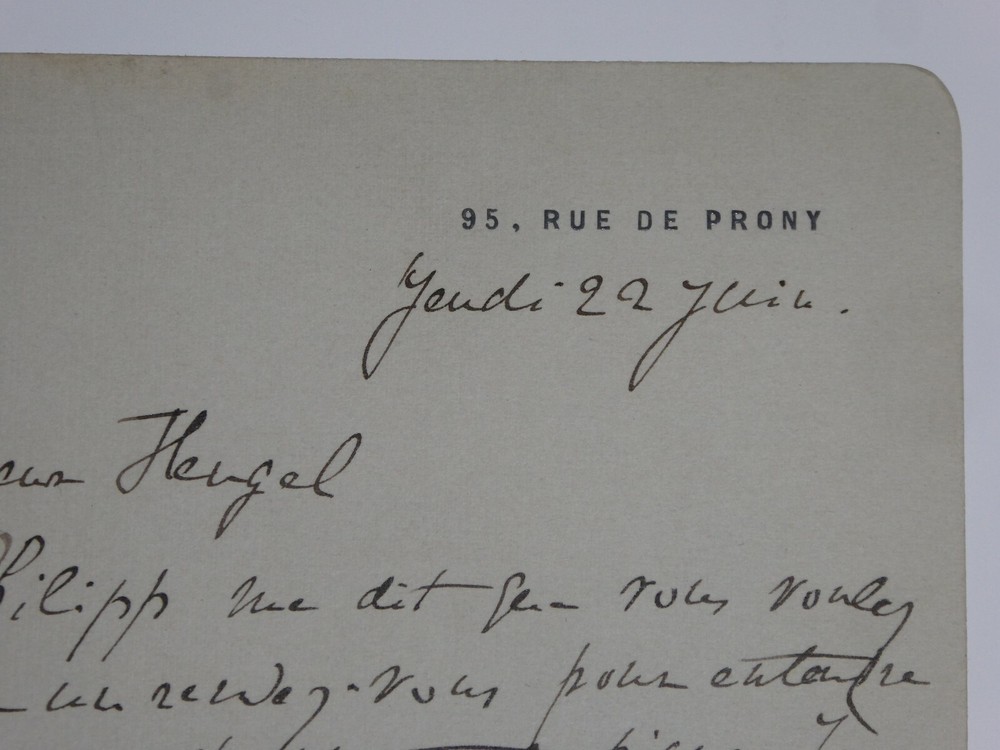 95, RUE DE PRONY
Jeudi 22 Juin.
Heugel
Philipp me dit que vous voulez
un rendez-vous pour entendre